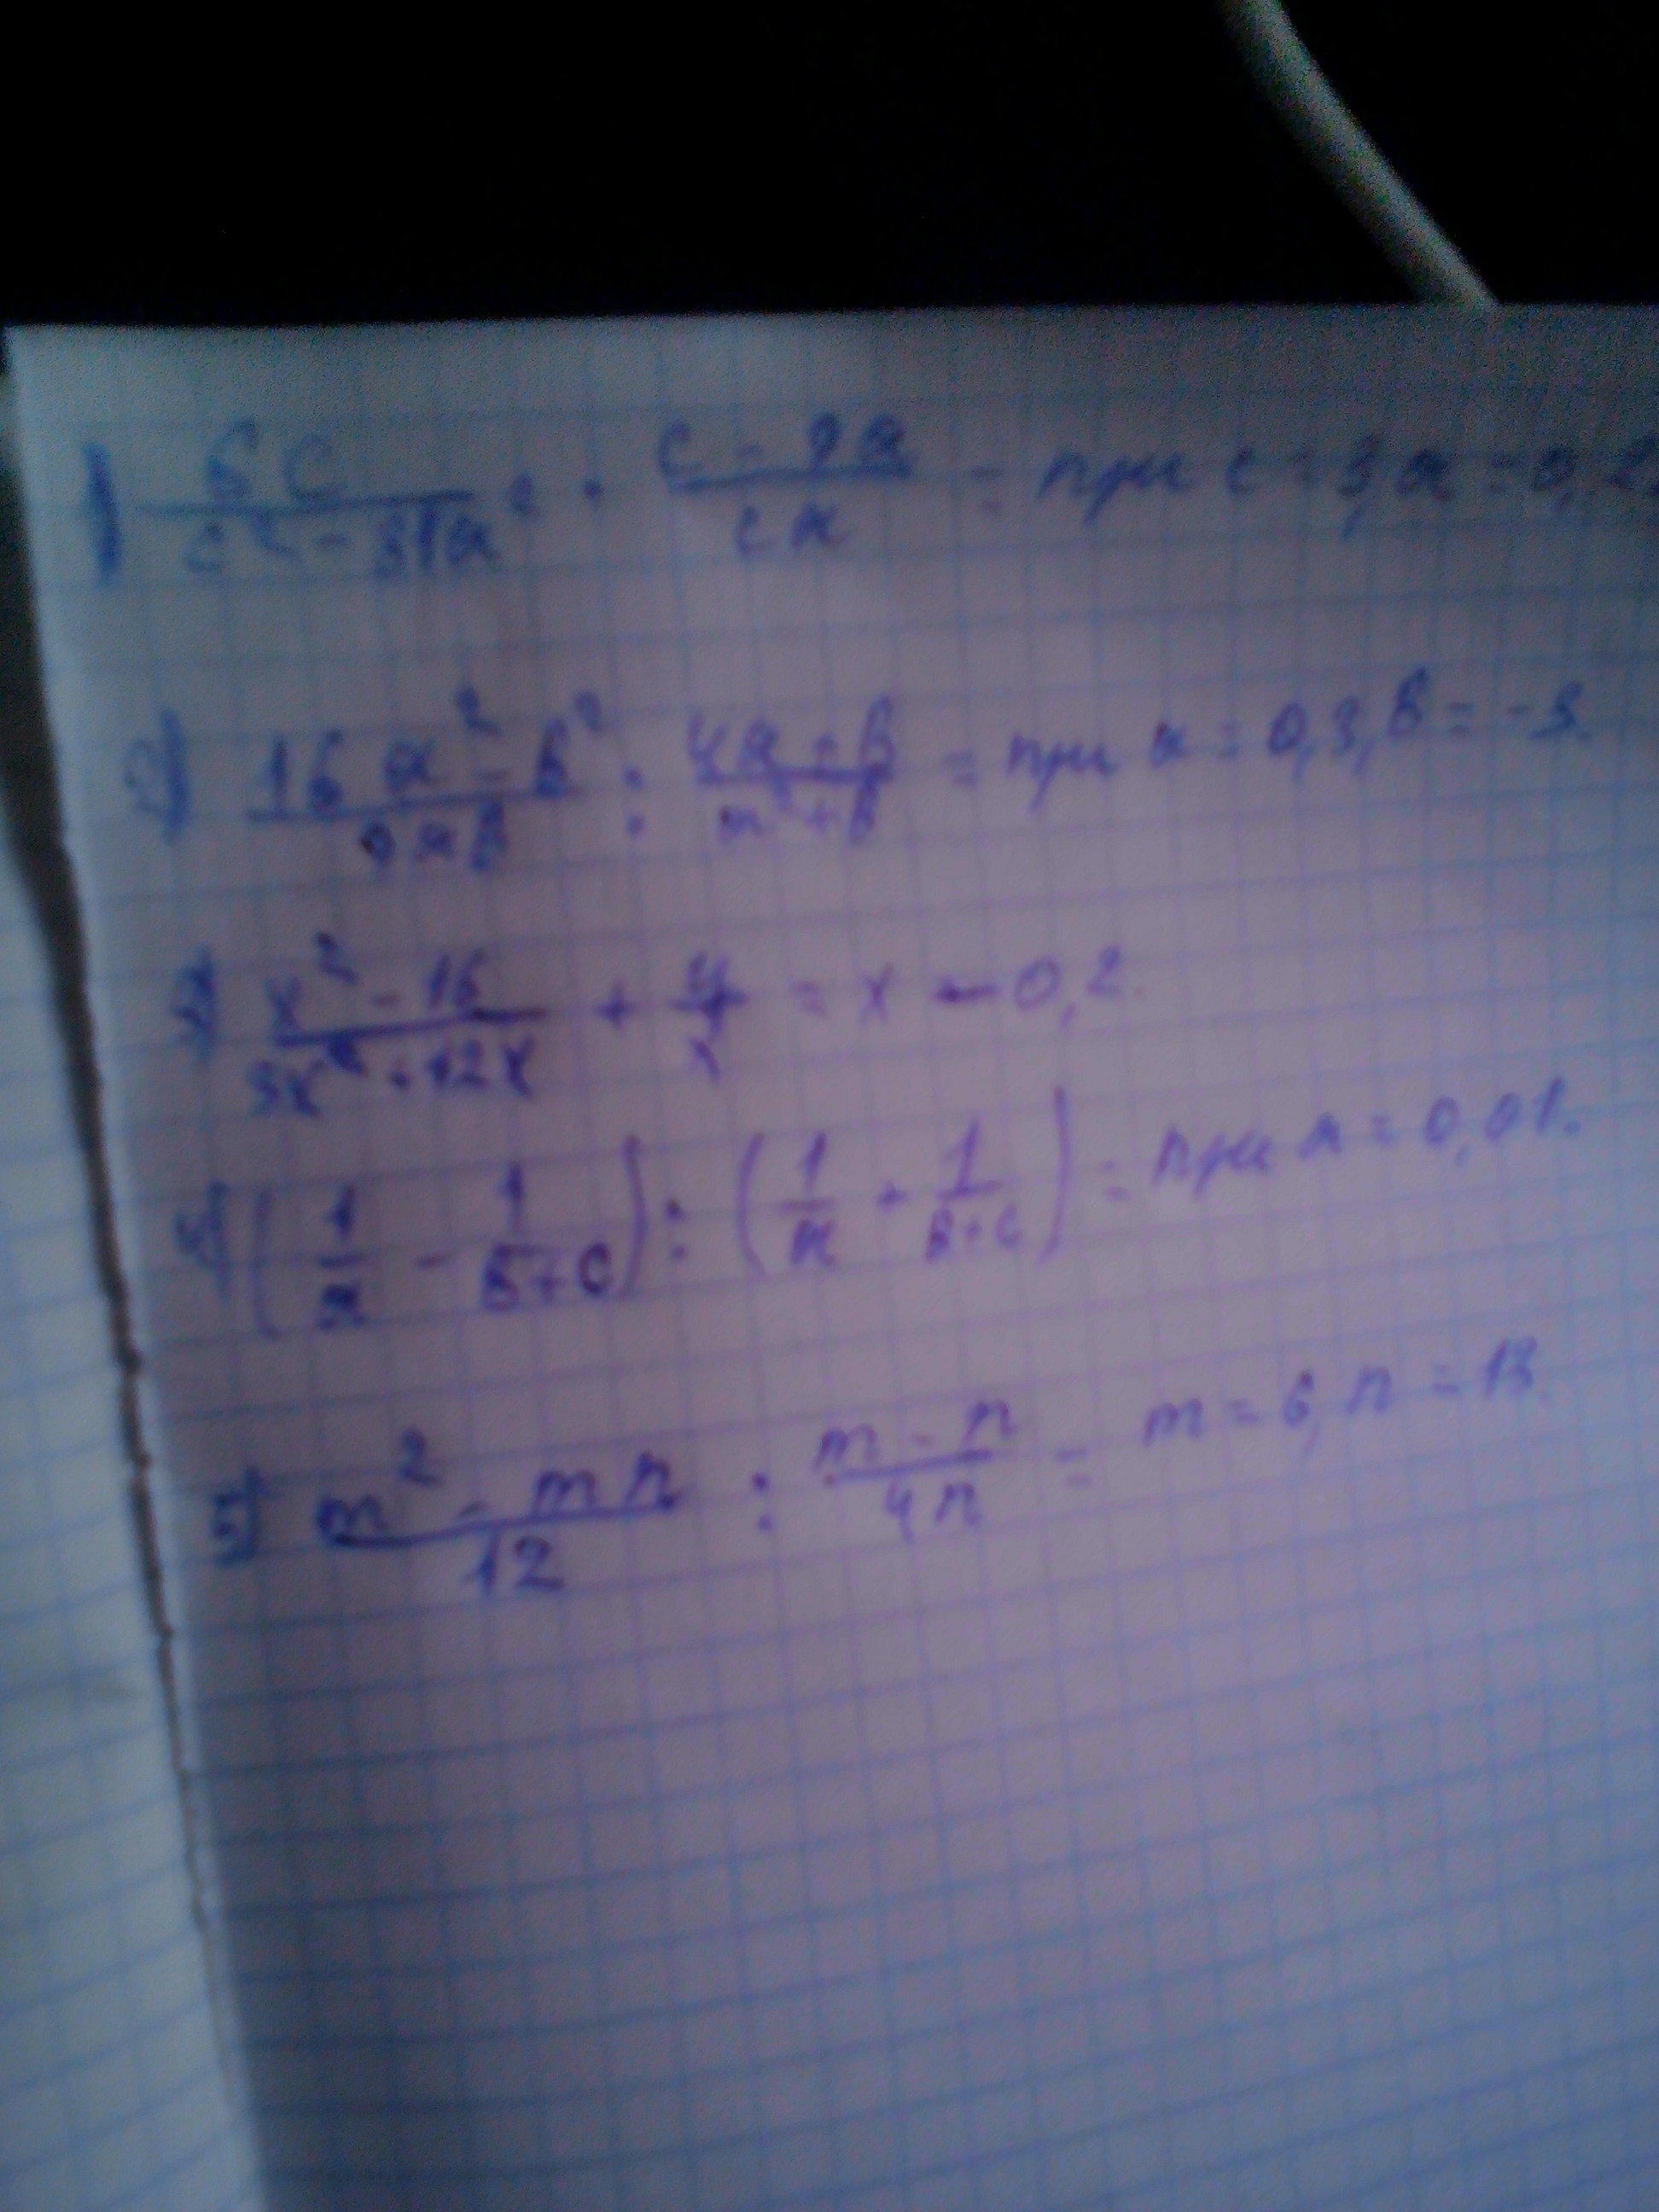 1) 5c/(c² - 81a²) · (c - 9a)/(ca) = при c = 3, a = 0,2
2) (16a² - b²)/(9ab) : (4a + b)/() = при a = 0,3, b = -3.
3) (x² - 16)/(3x² + 12x) + 4/x = x - 0,2.
4) (1/a - 1/(b+c)) : (1/a + 1/(b+c)) = при a = 0,01.
5) (m² - mn)/12 : (m - n)/(4n) = m = 6, n = 13.